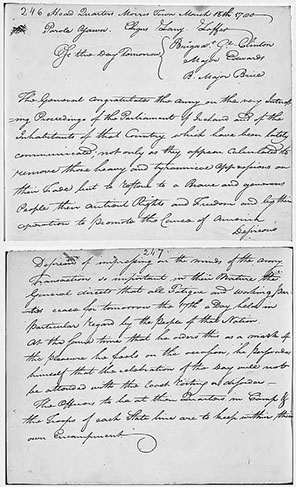 246 Head Quarters Morris Town March 16th 1780
Parole
Of the Day Tomorrow { Brigad. Gl. Clinton
Major Edwards
B. Major Brice
The General congratulates the army on the very Interest
=ing Proceedings of the Parliament of Ireland and of the
Inhabitants of that Country which have been lately
communicated; not only as they appear calculated to
remove those heavy and tyrannical oppressions on
their Trade but to restore to a Brave and generous
People their antient Rights and Freedom and by their
operation to Promote the Cause of America
Desirous
247
Desirous of impressing on the minds of the army
transactions so important in their Nature the
General directs that all Fatigue and working Par=
ties cease for tomorrow the 17th a Day held in
Particular Regard by the People of that Nation
At the same time that he orders this as a mark of
the pleasure he feels on the occasion, he persuades
himself that the celebration of the Day will not
be attended with the least Rioting or disorder—
The Officers to be at their Quarters in Camp &
the Troops of each State line are to keep within their
own Encampment